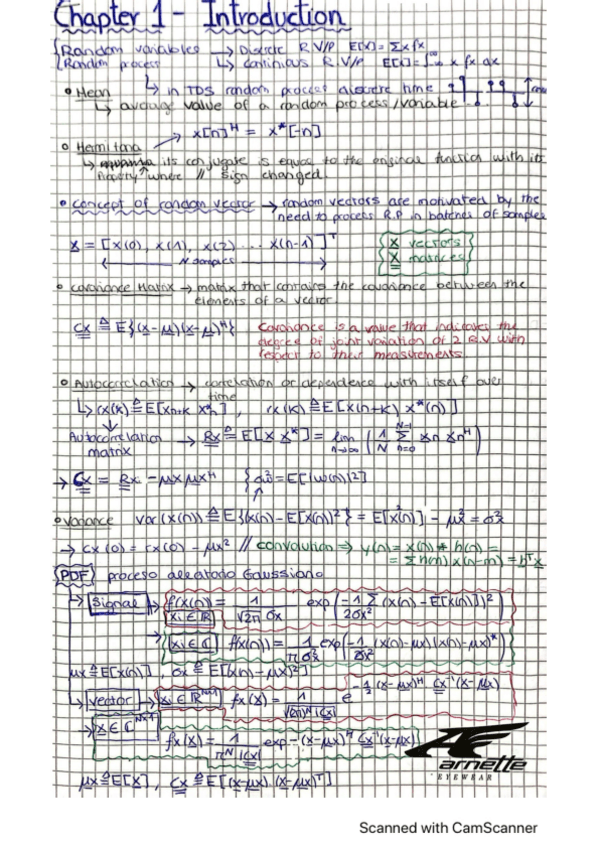 Chapter 1 - Introduction
{Random variables → Discrete R.V/P E[x] = Σx fx
{Random process ↳ Continuous R.V/P E[x] = ∫ x fx dx
• Mean ↳ in TDS random process discrete time
↳ average value of a random process/variable
→ x[n]ᴴ = x*[-n]
• Hermitana
↳ its conjugate is equal to the original function with its
where // sign changed.
• Concept of random vector → random vectors are motivated by the
need to process R.P in batches of samples
x = [x(0), x(1), x(2) ... x(n-1)]ᵀ
N samples
{x vectors
x matrices}
• Covariance Matrix → matrix that contains the covariance between the
elements of a vector.
Cx ≜ E{(x-μ)(x-μ)ᴴ}
Covariance is a value that indicates the
degree of joint variation of 2 R.V. with
respect to their measurements
• Autocorrelation → correlation or dependence with itself over
time
↳ rx(k) ≜ E[xn+k x*n], rx(k) ≜ E[x(n+k) x*(n)]
Autocorrelation → Rx ≜ E[x x*] = lim n→∞ (1/N Σ n=0 N-1 xn xnᴴ)
matrix
→ Cx = Rx - μx μxᴴ {σ² = E[|w(n)|²]
• Variance var(x(n)) ≜ E{(x(n) - E[x(n)])²} = E[x²(n)] - μx² = σx²
→ cx(0) = rx(0) - μx² // convolution ⇒ y(n) = x(n) * h(n) =
= Σ h(m) x(n-m) = hᵀx
PDF proceso aleatorio Gaussiano
↳ Signal → f(x(n)) = 1/√2π σx exp(-1/2σx² Σ (x(n) - E[x(n)])²)
xi ∈ ℝ
→ xi ∈ ℂ f(x(n)) = 1/πσx² exp(-1/σx² (x(n)-μx)(x(n)-μx)*)
μx ≜ E[x(n)], σx ≜ E[(x(n)-μx)²]
↳ Vector → xi ∈ ℝᴺˣ¹ fx(x) = 1/√(2π)ᴺ|Cx| e^-1/2 (x-μx)ᴴ Cx⁻¹(x-μx)
↳ x ∈ ℂᴺˣ¹
fx(x) = 1/πᴺ|Cx| exp-(x-μx)ᴴ Cx⁻¹(x-μx)
μx ≜ E[x], Cx ≜ E[(x-μx)(x-μx)ᵀ]
arnette
EYEWEAR
Scanned with CamScanner